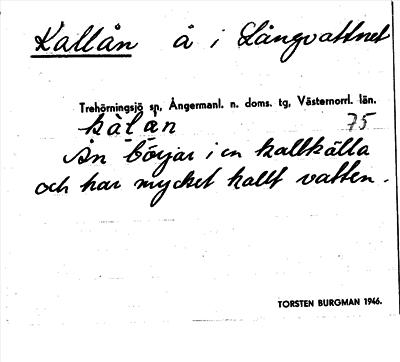 Kallån å i Långvattnet
Trehörningsjö sn, Ångermanl. n. doms. tg, Västernorrl. län.
kàl ån 75
Ån börjar i en kallkälla
och har mycket kallt vatten.
TORSTEN BURGMAN 1946.